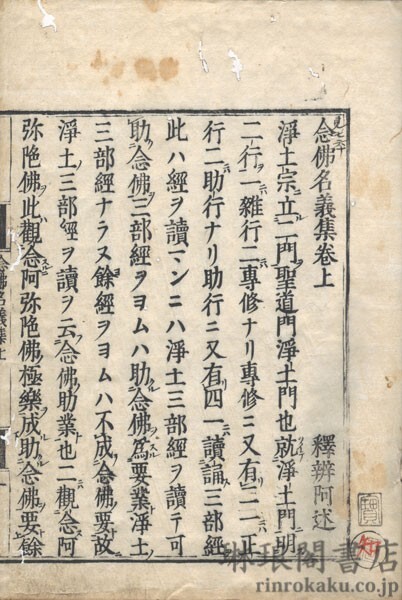 念佛名義集卷上 釋辨阿述
淨土宗立二門聖道門淨土門也就淨土門明
二行一雜行二專修ナリ專修ニ又有二一正
行二助行ナリ助行ニ又有四一讀誦三部經
此ハ經ヲ讀マンニハ淨土三部經ヲ讀テ可
助念佛三部經ヲヨムハ助念佛為要業淨土
三部經ナラヌ餘經ヲヨムハ不成念佛要故
淨土三部經ヲ讀ヲ云念佛助業也二觀念阿
弥陀佛此觀念阿弥陀佛極樂成助念佛要餘
念佛名義集上
琳琅閣書店
rinrokaku.co.jp